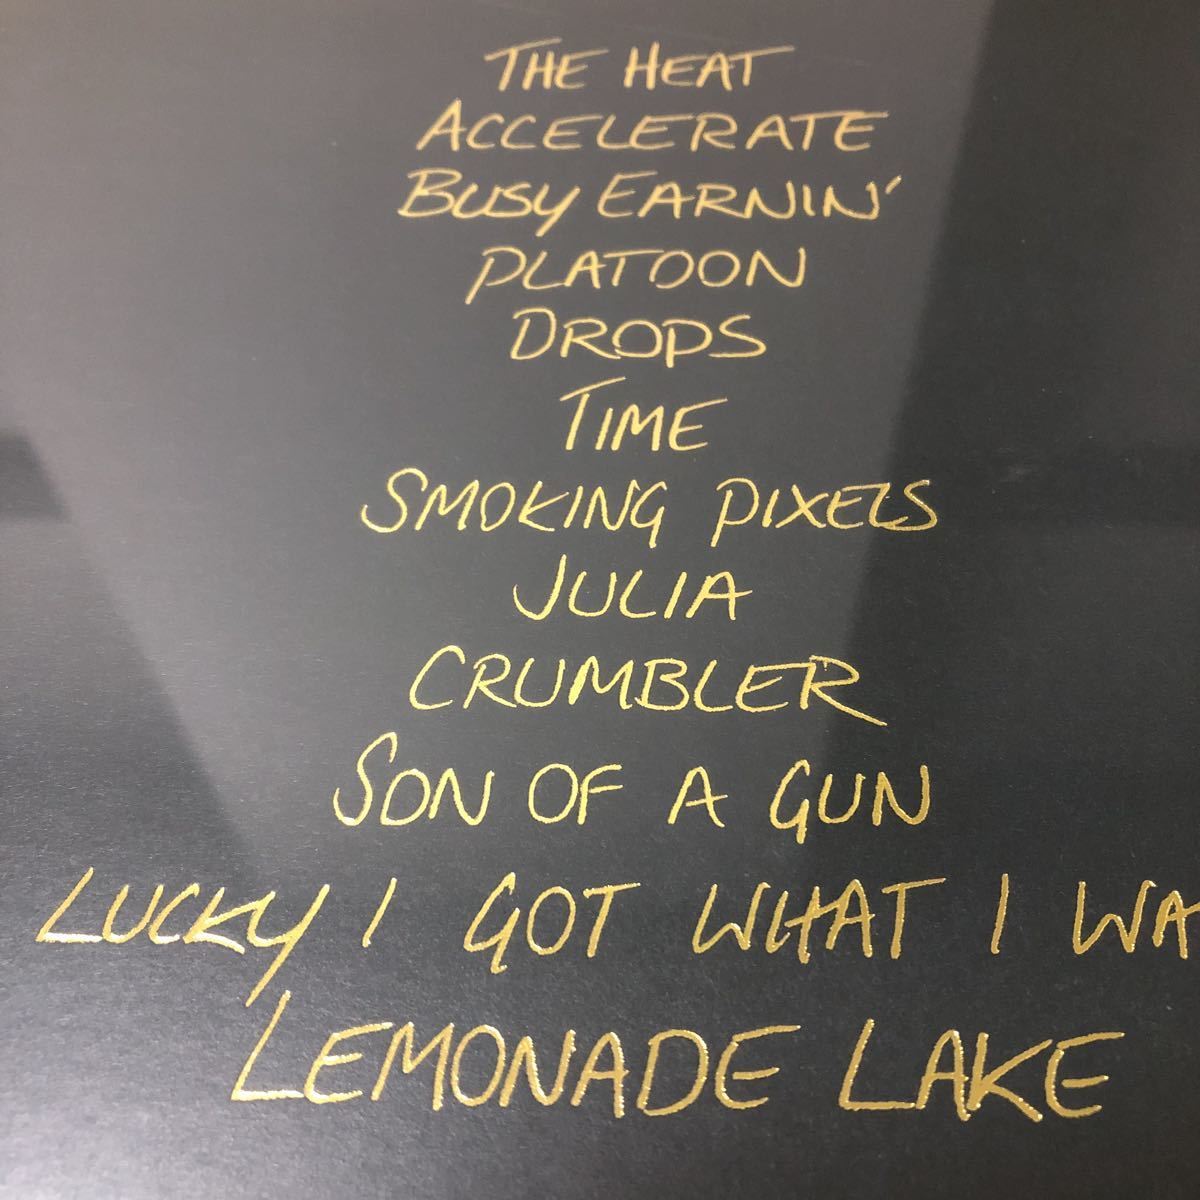 THE HEAT
ACCELERATE
BUSY EARNIN'
PLATOON
DROPS
TIME
SMOKING PIXELS
JULIA
CRUMBLER
SON OF A GUN
LUCKY I GOT WHAT I WA
LEMONADE LAKE